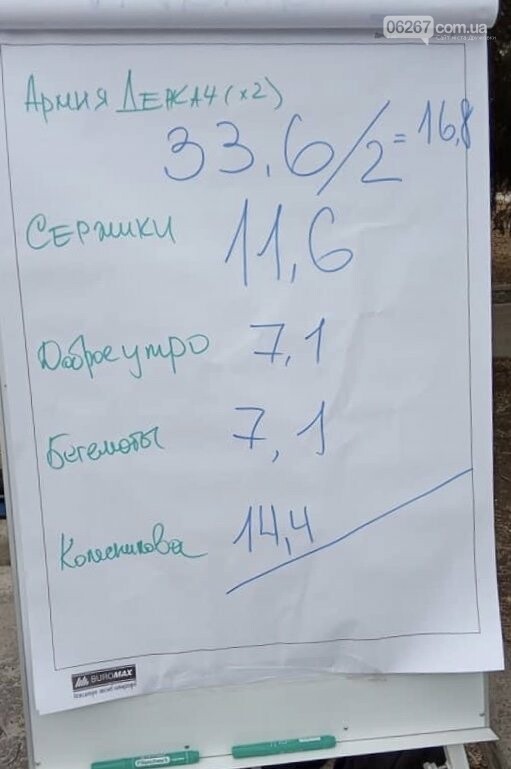 06267.com.ua
Армия ДЕРКАЧ (x2)
33.6/2 = 16,8
СЕРЖИКИ
11,6
Доброе утро 7,1
Бегемоты 7,1
Колесникова 14,4
BUROMAX